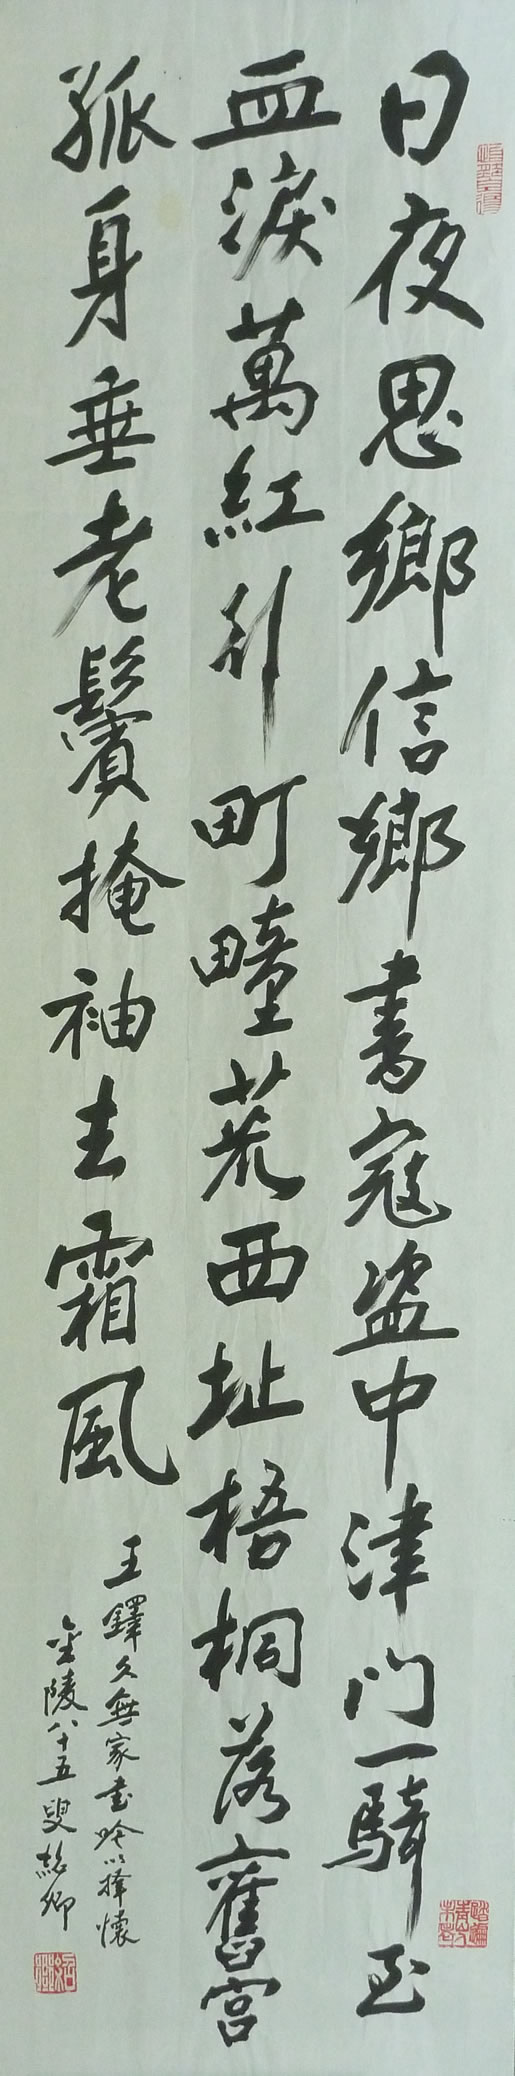 日夜思鄉信鄉書寇盜中津門一騎至
血淚萬紅引町疃荒西址梧桐落舊宮
孤身垂老鬢掩袖主霜風
王鐸久無家書吟以擇懷
金陵八十五叟紹卿